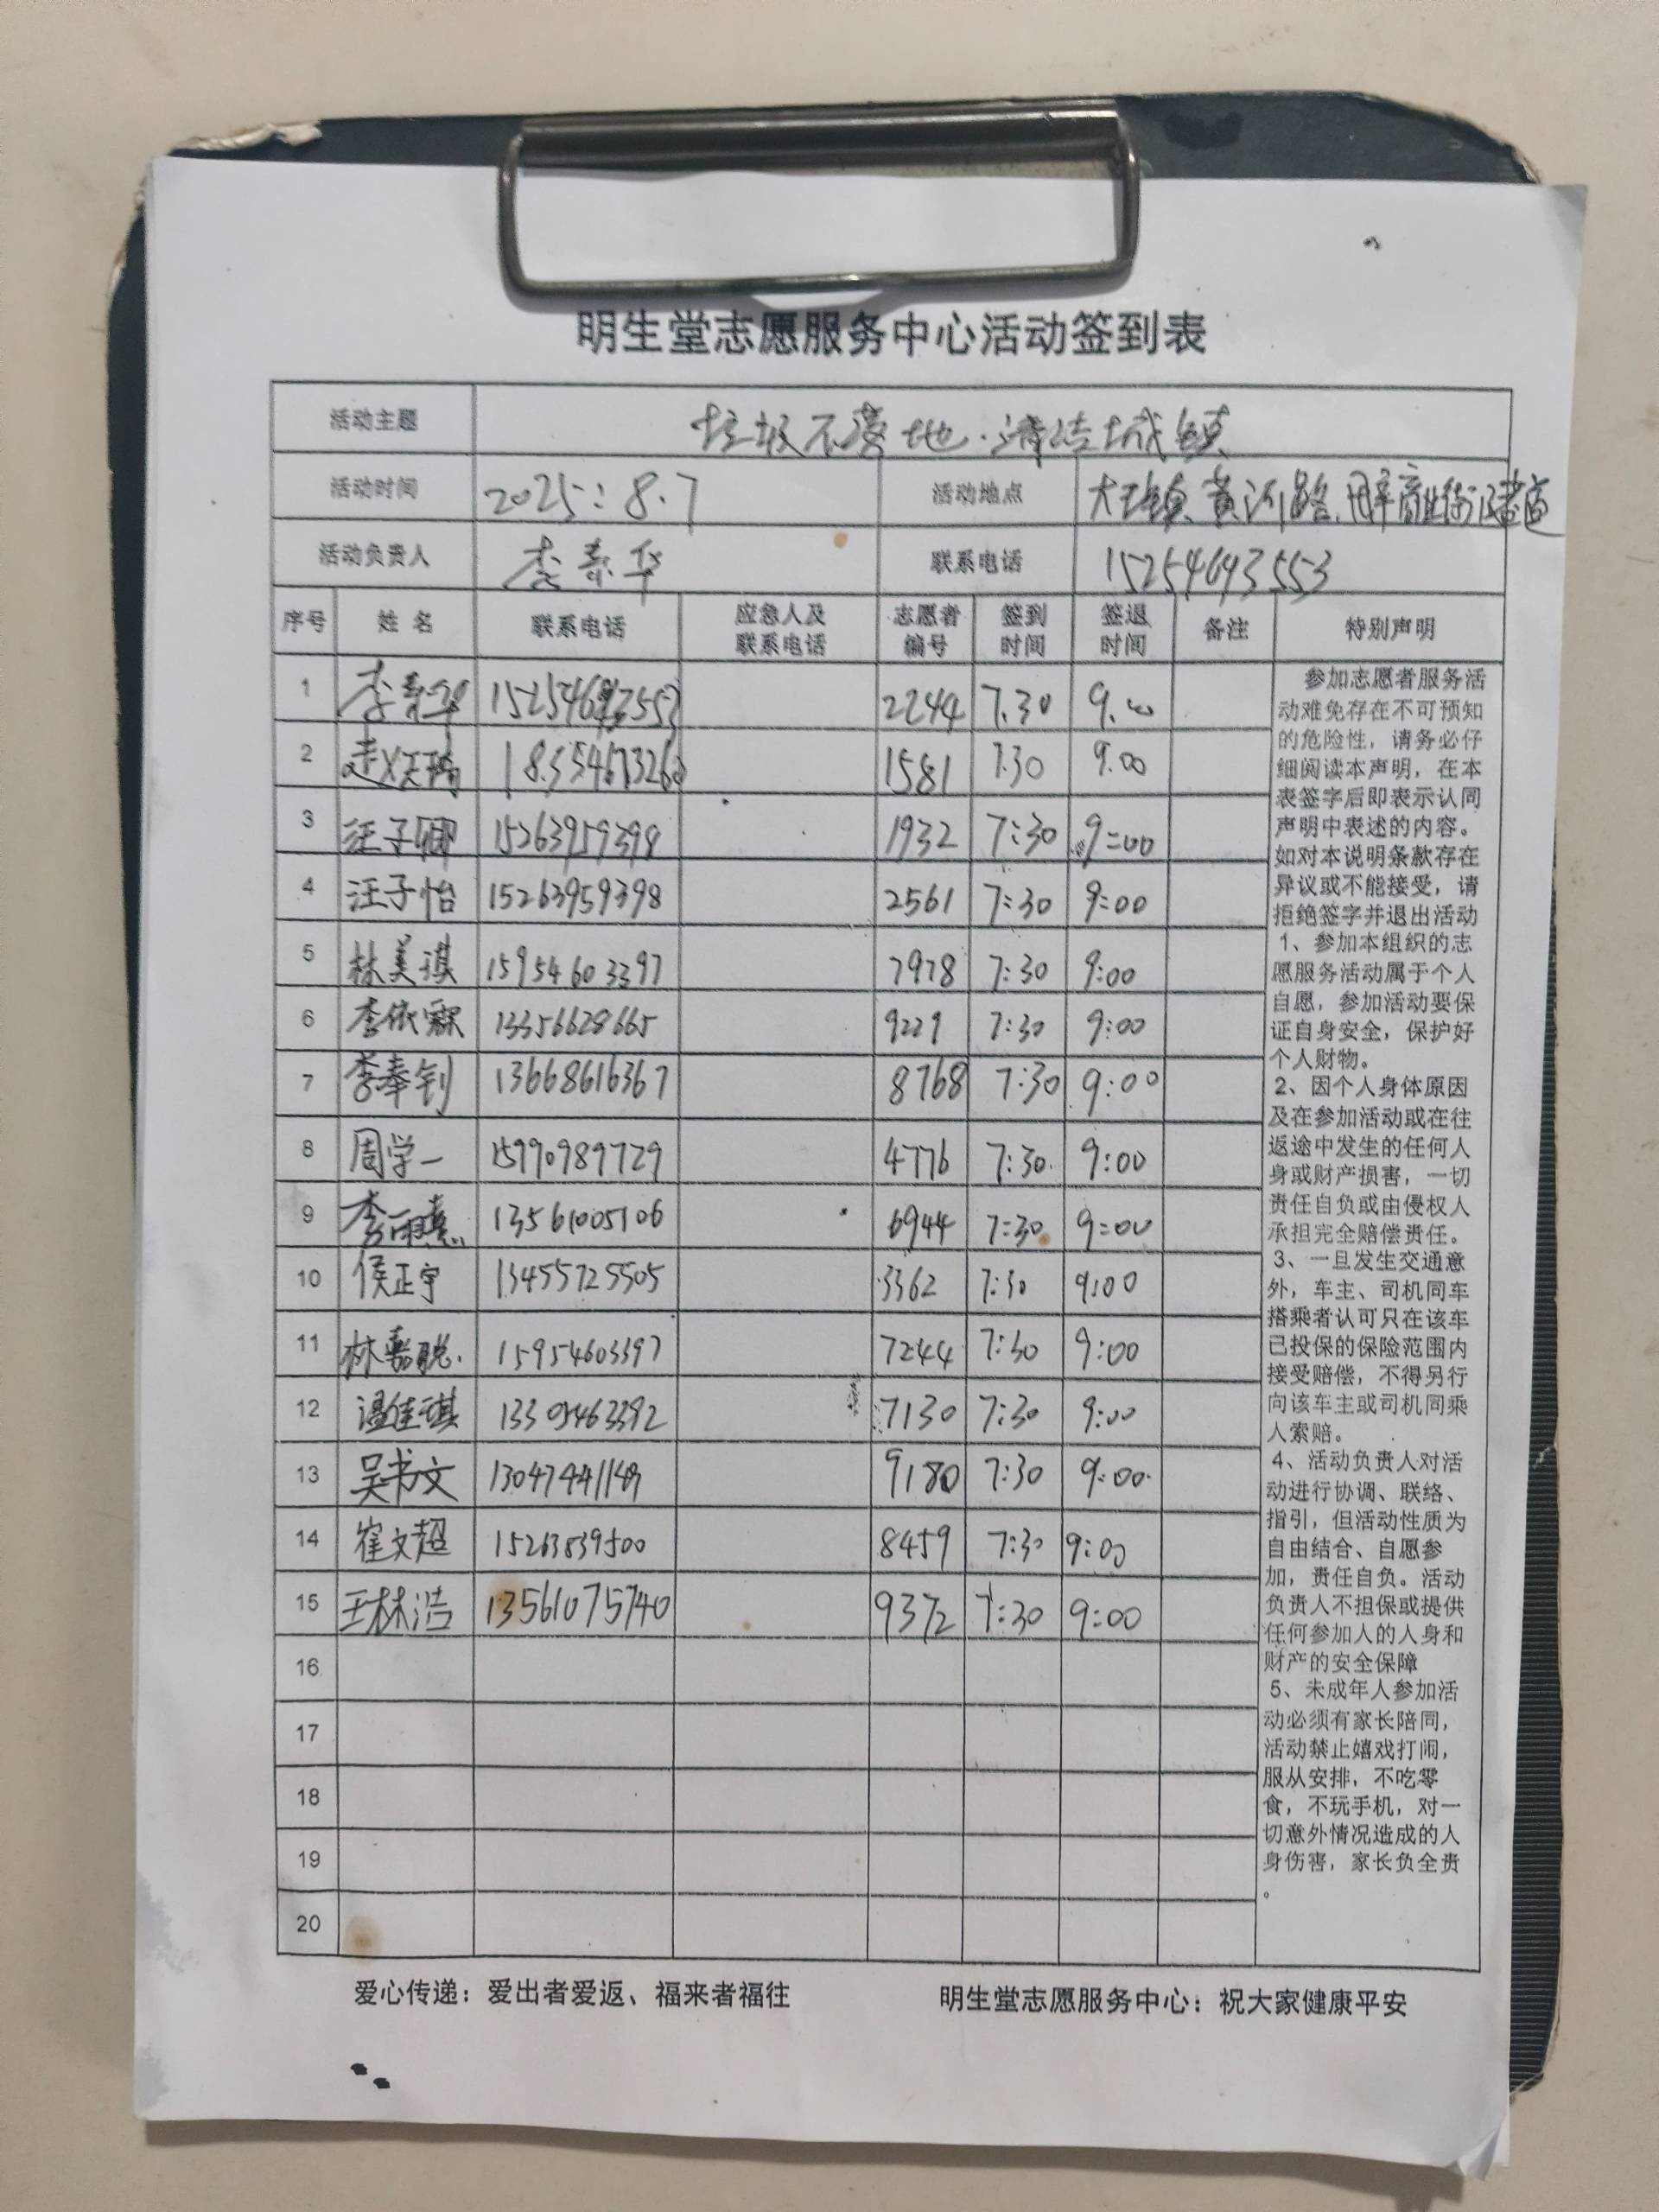 明生堂志愿服务中心活动签到表
活动主题 垃圾不落地·清洁城镇
活动时间 2025:8.7 活动地点 大王镇黄河路、
活动负责人 李泰华 联系电话 15254693553
序号 姓名 联系电话 应急人及联系电话 志愿者编号 签到时间 签退时间 备注 特别声明
1 李泰华 2244 7.30 9.00
2 1581 7.30 9.00
3 汪子卿 15263959398 1932 7:30 9:00
4 汪子怡 15263959398 2561 7:30 9:00
5 林美琪 15954603397 7978 7:30 9:00
6 李依霖 13356628665 9229 7:30 9:00
7 李奉钊 13668616367 8768 7:30 9:00
8 周学一 15990989729 4776 7:30 9:00
9 李雨熹 13561005106 6944 7:30 9:00
10 侯正宇 13455725505 3362 7:30 9:00
11 林嘉聪 15954603397 7244 7:30 9:00
12 温佳琪 7130 7:30 9:00
13 吴书文 9180 7:30 9:00
14 崔文超 15263839500 8459 7:30 9:00
15 王林浩 13561075740 9372 7:30 9:00
16
17
18
19
20
参加志愿者服务活
动难免存在不可预知
的危险性，请务必仔
细阅读本声明，在本
表签字后即表示认同
声明中表述的内容。
如对本说明条款存在
异议或不能接受，请
拒绝签字并退出活动
1、参加本组织的志
愿服务活动属于个人
自愿，参加活动要保
证自身安全，保护好
个人财物。
2、因个人身体原因
及在参加活动或在往
返途中发生的任何人
身或财产损害，一切
责任自负或由侵权人
承担完全赔偿责任。
3、一旦发生交通意
外，车主、司机同车
搭乘者认可只在该车
已投保的保险范围内
接受赔偿，不得另行
向该车主或司机同乘
人索赔。
4、活动负责人对活
动进行协调、联络、
指引，但活动性质为
自由结合、自愿参
加，责任自负。活动
负责人不担保或提供
任何参加人的人身和
财产的安全保障
5、未成年人参加活
动必须有家长陪同，
活动禁止嬉戏打闹，
服从安排，不吃零
食，不玩手机，对一
切意外情况造成的人
身伤害，家长负全责
。
爱心传递：爱出者爱返、福来者福往 明生堂志愿服务中心：祝大家健康平安